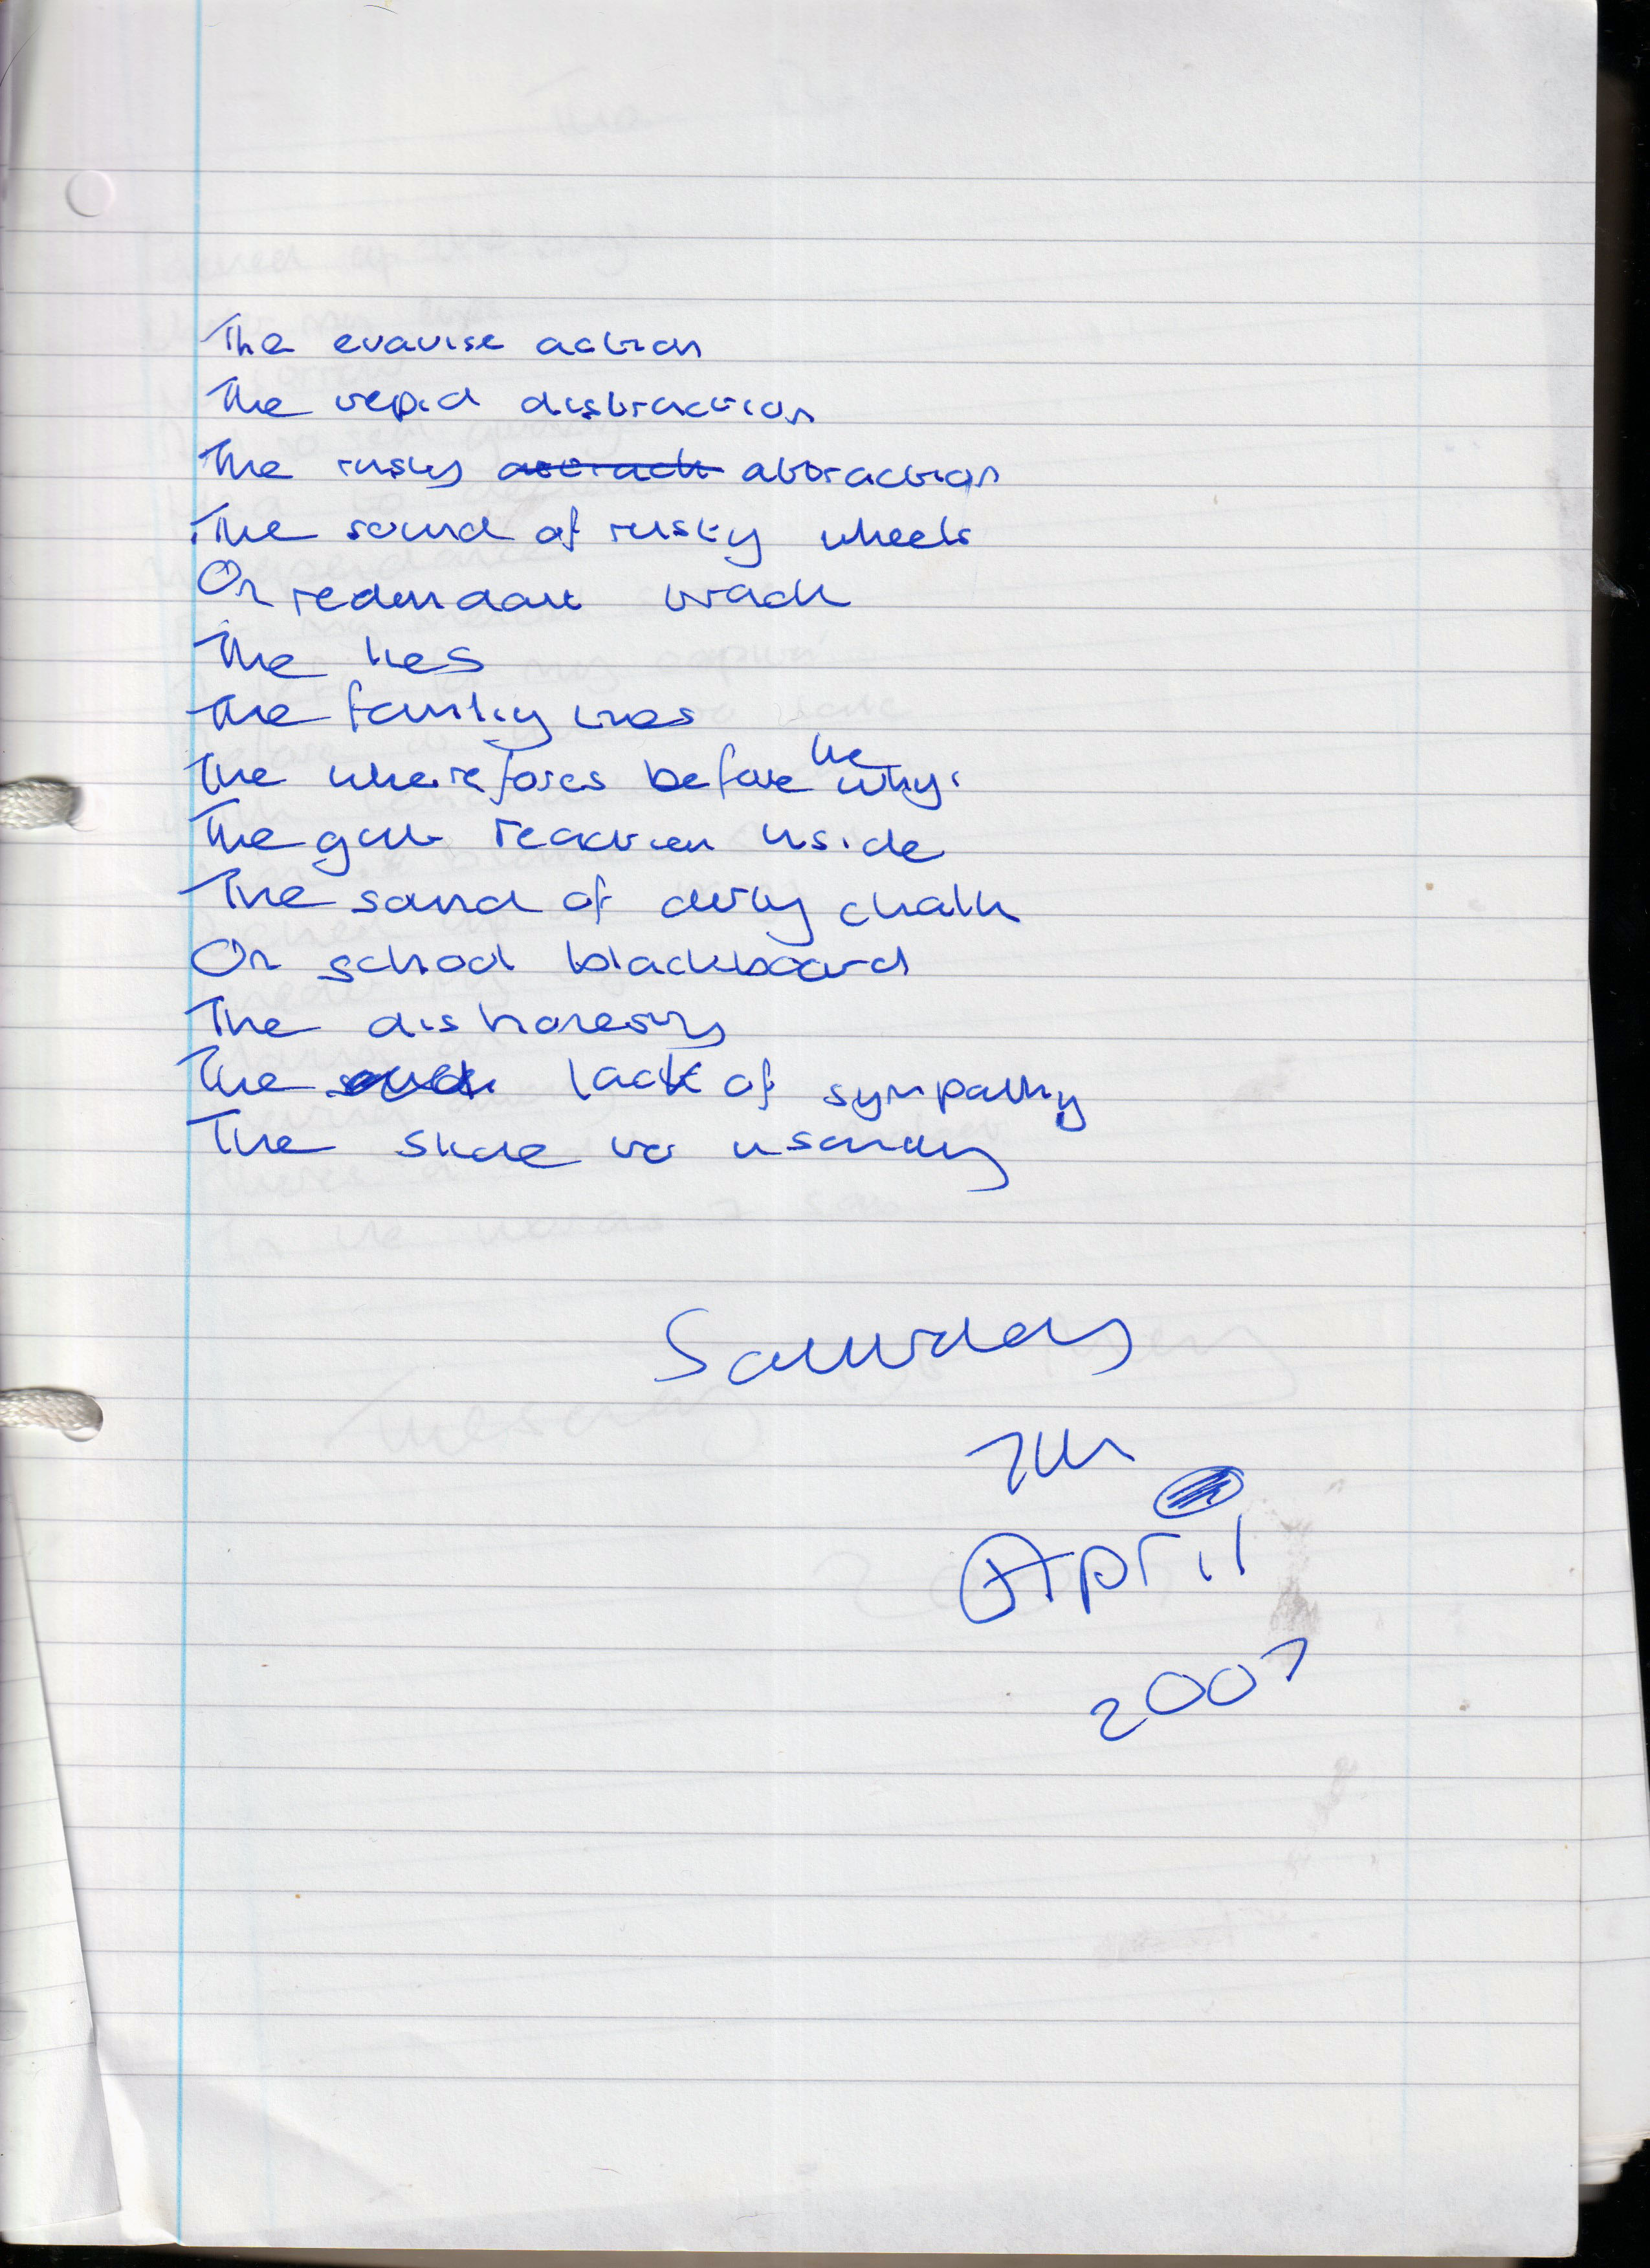 The evavise action
The tepid distraction
The risky attraction
The sound of rusty wheels
On redundant track
The lies
The family ties
The wherefores before the whys
The gut reaction inside
The sound of dirty chalk
On school blackboard
The dishonesty
The lack of sympathy
The slide to insanity
Saturday
7th
April
2007